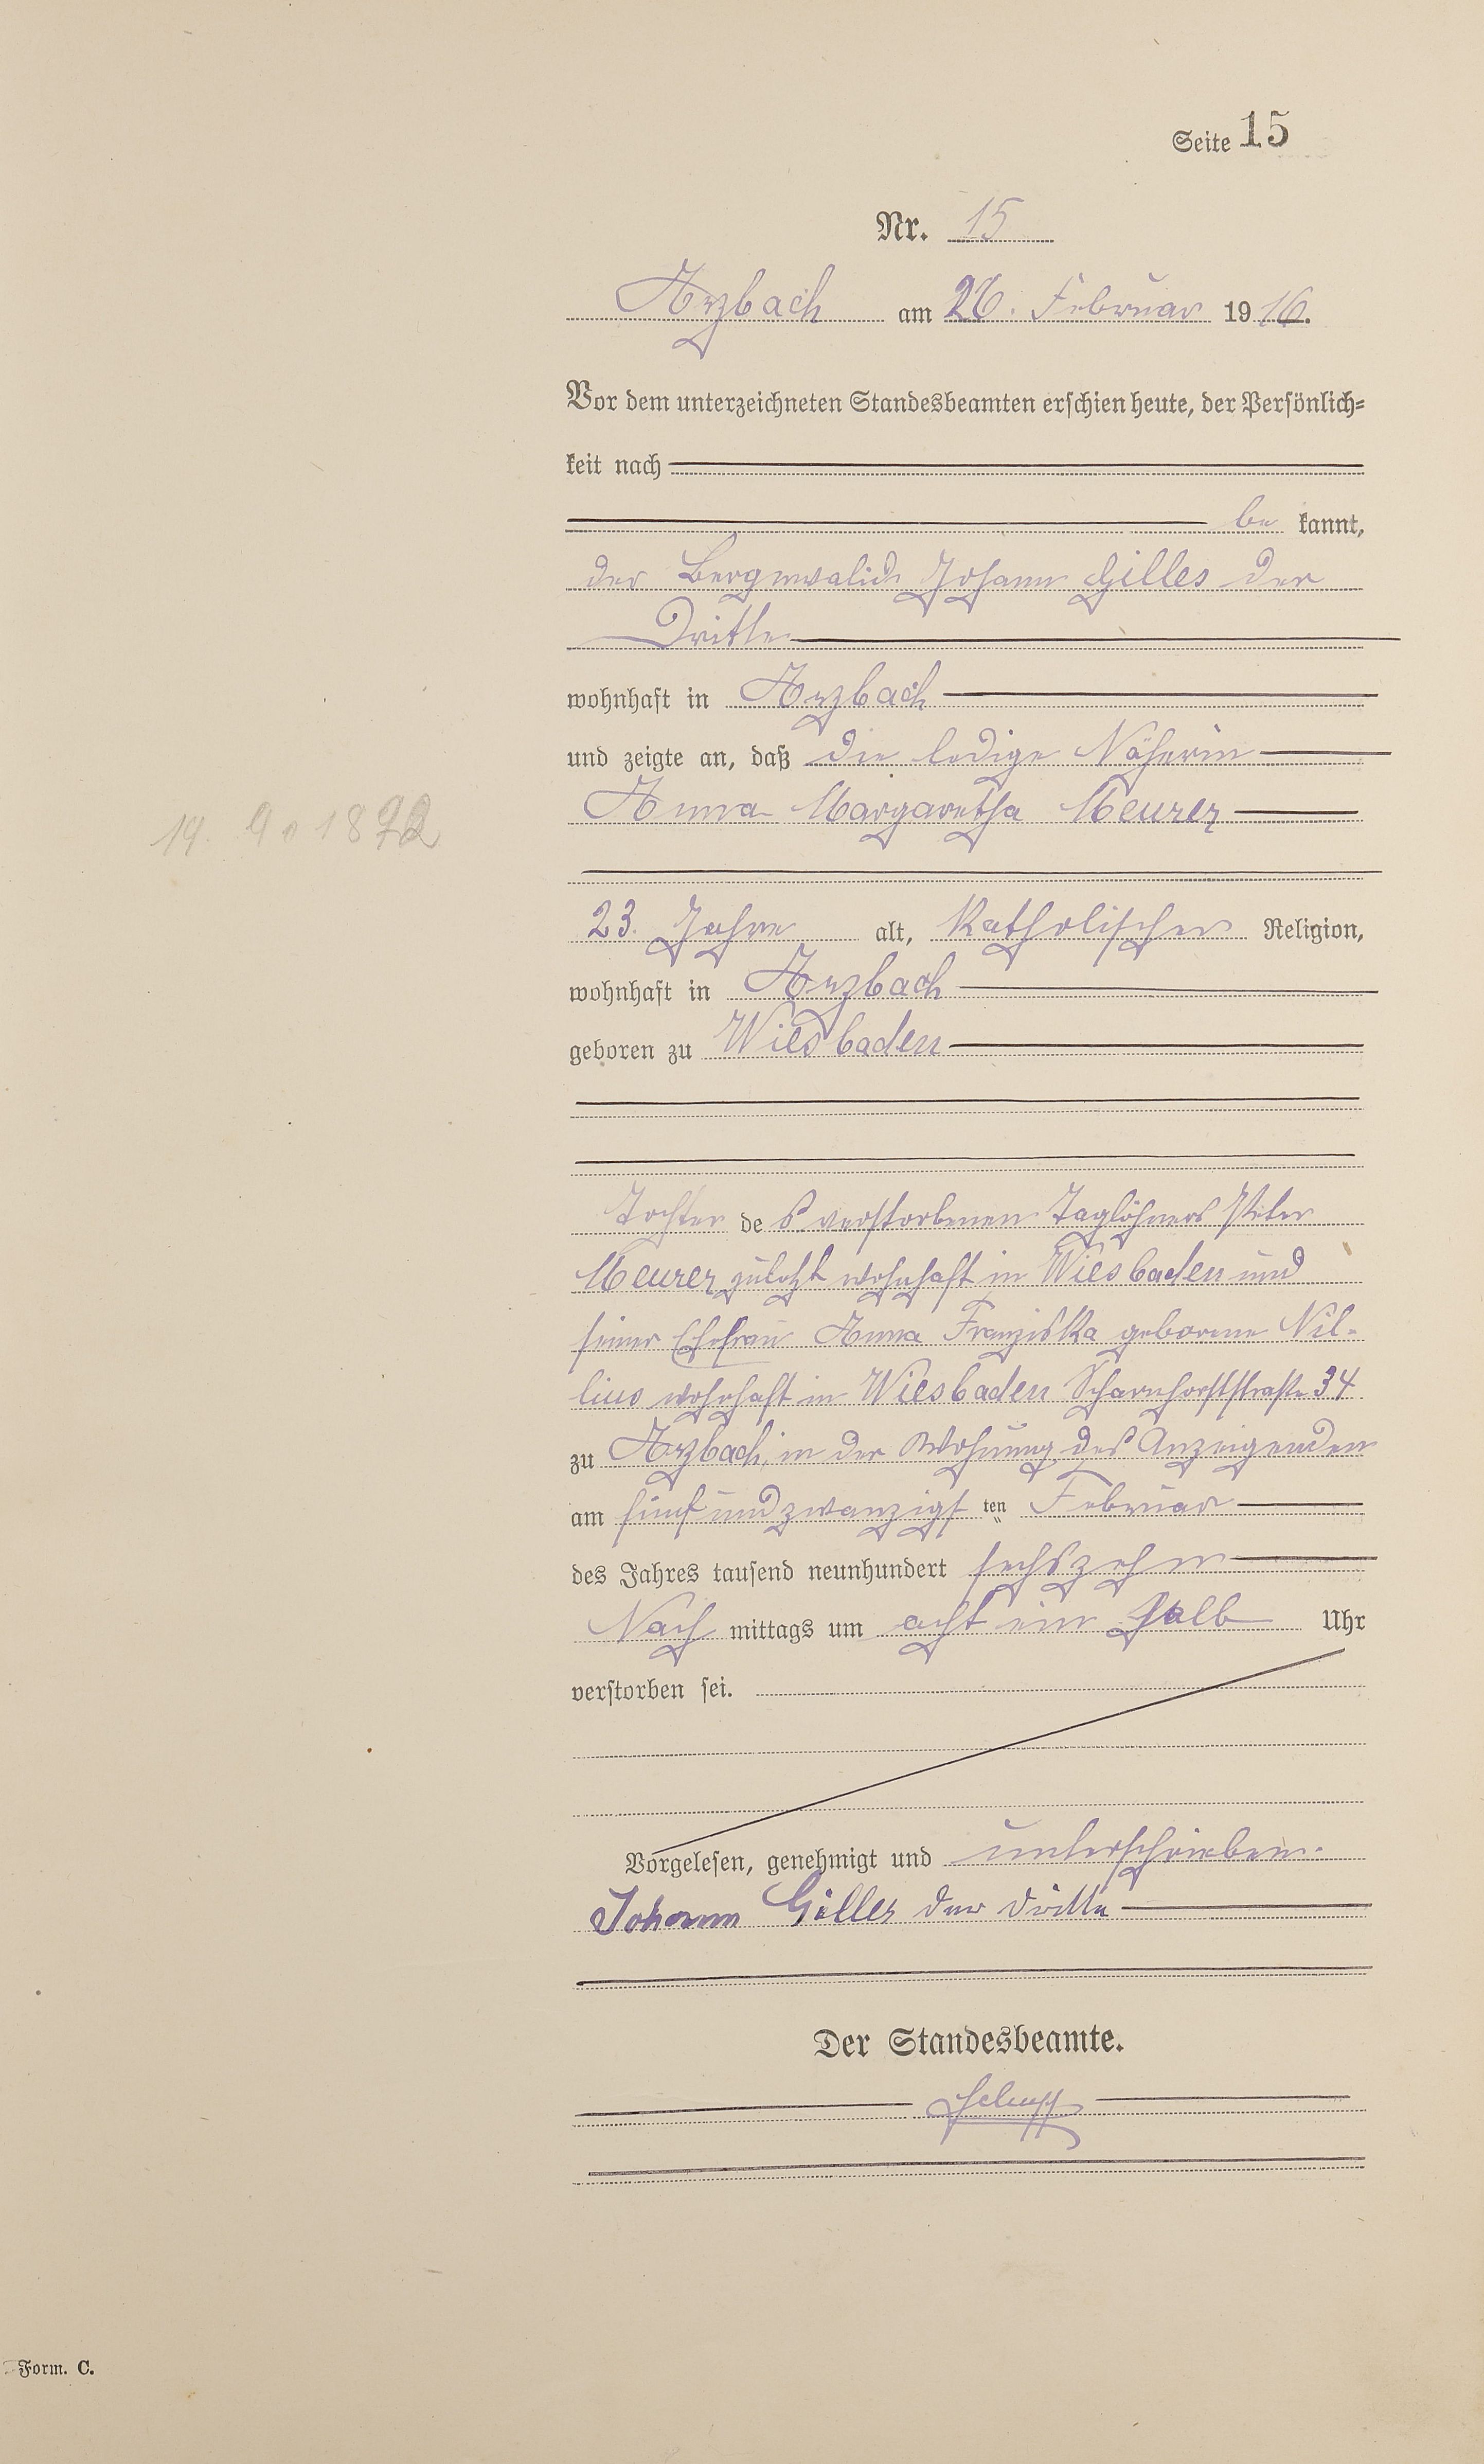 Seite 15
Nr. 15
Arzbach am 26. Februar 1916.
Vor dem unterzeichneten Standesbeamten erschien heute, der Persönlich=
keit nach
be kannt,
der Berginvalide Johann Gilles der
Dritte
wohnhaft in Arzbach
und zeigte an, daß die ledige Näherin
Anna Margaretha Meurer
19. 9. 1892
23 Jahre alt, katholischer Religion,
wohnhaft in Arzbach
geboren zu Wiesbaden
Tochter des verstorbenen Taglöhners Peter
Meurer zuletzt wohnhaft in Wiesbaden und
seiner Ehefrau Anna Franziska geborene Nil-
lius wohnhaft in Wiesbaden Scharnhorststraße 34
zu Arzbach, in der Wohnung des Anzeigenden
am fünfundzwanzigsten Februar
des Jahres tausend neunhundert sechszehn
Nachmittags um acht ein halb Uhr
verstorben sei.
Vorgelesen, genehmigt und unterschrieben.
Johann Gilles der dritte
Der Standesbeamte.
Form. C.